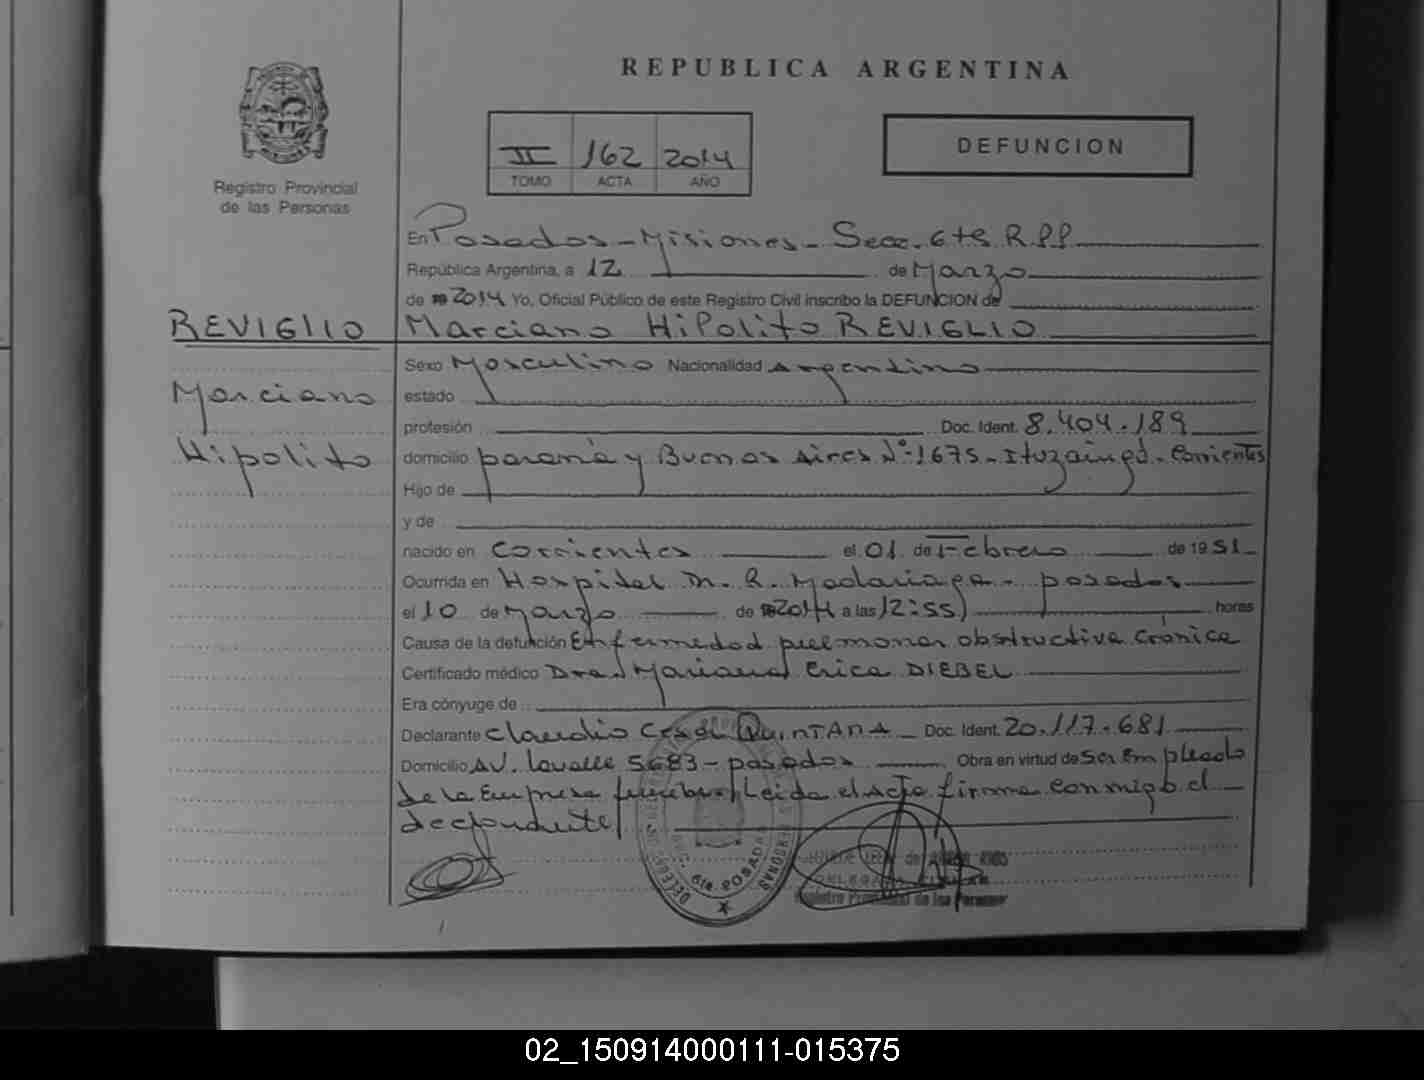 REPUBLICA ARGENTINA
II 162 2014
TOMO ACTA AÑO
DEFUNCION
Registro Provincial
de las Personas
En Posadas - Misiones - Secc. 6ta R.P.P.
República Argentina, a 12 de Marzo
de 2014 Yo, Oficial Público de este Registro Civil inscribo la DEFUNCION de
REVIGLIO
Marciano
Hipolito
Marciano HiPolito REVIGLIO
Sexo Masculino Nacionalidad Argentino
estado
profesión Doc. Ident. 8.404.189
domicilio paraná y Buenos Aires N° 1675 - Ituzaingó - Corrientes
Hijo de
y de
nacido en Corrientes el 01 de Febrero de 1951
Ocurrida en Hospital Dr. R. Madariaga - posadas
el 10 de Marzo de 2014 a las 12:55) horas
Causa de la defunción Enfermedad pulmonar obstructiva crónica
Certificado médico Dra. Mariana Erica DIEBEL
Era cónyuge de
Declarante Claudio Cesar QUINTANA - Doc. Ident. 20.117.681
Domicilio AV. Lavalle 5683 - posadas Obra en virtud de Ser Empleado
de la Empresa funebre, Leida el Acta firma conmigo el
declarante
DELEG
SEC. 6ta. POSADAS
Registro Provincial de las Personas
02_150914000111-015375